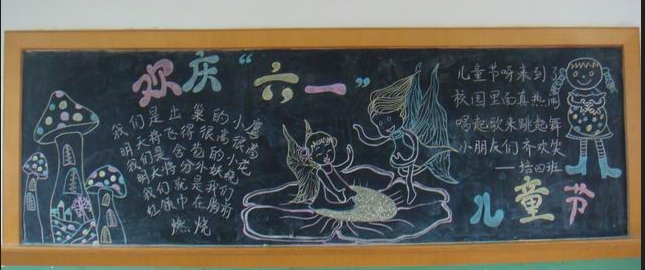 欢庆“六一”
我们是出巢的小鹰
明天将飞得很高很高
我们是含苞的小花
明天将分外妖娆
我们就是我们
红领巾在胸前
燃烧
儿童节呀来到了
校园里面真热闹
唱起歌来跳起舞
小朋友们齐欢笑
——培四班
儿童节